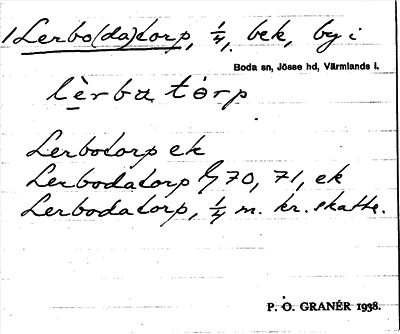 1 Lerbo(da)torp, 1/4, bek, by i
Boda sn, Jösse hd, Värmlands l.
lè̱rba tȯrp
Lerbotorp ek
Lerbodatorp G 70, 71, ek
Lerbodatorp, 1/4 m. kr. skatte.
P. O. GRANÉR 1938.